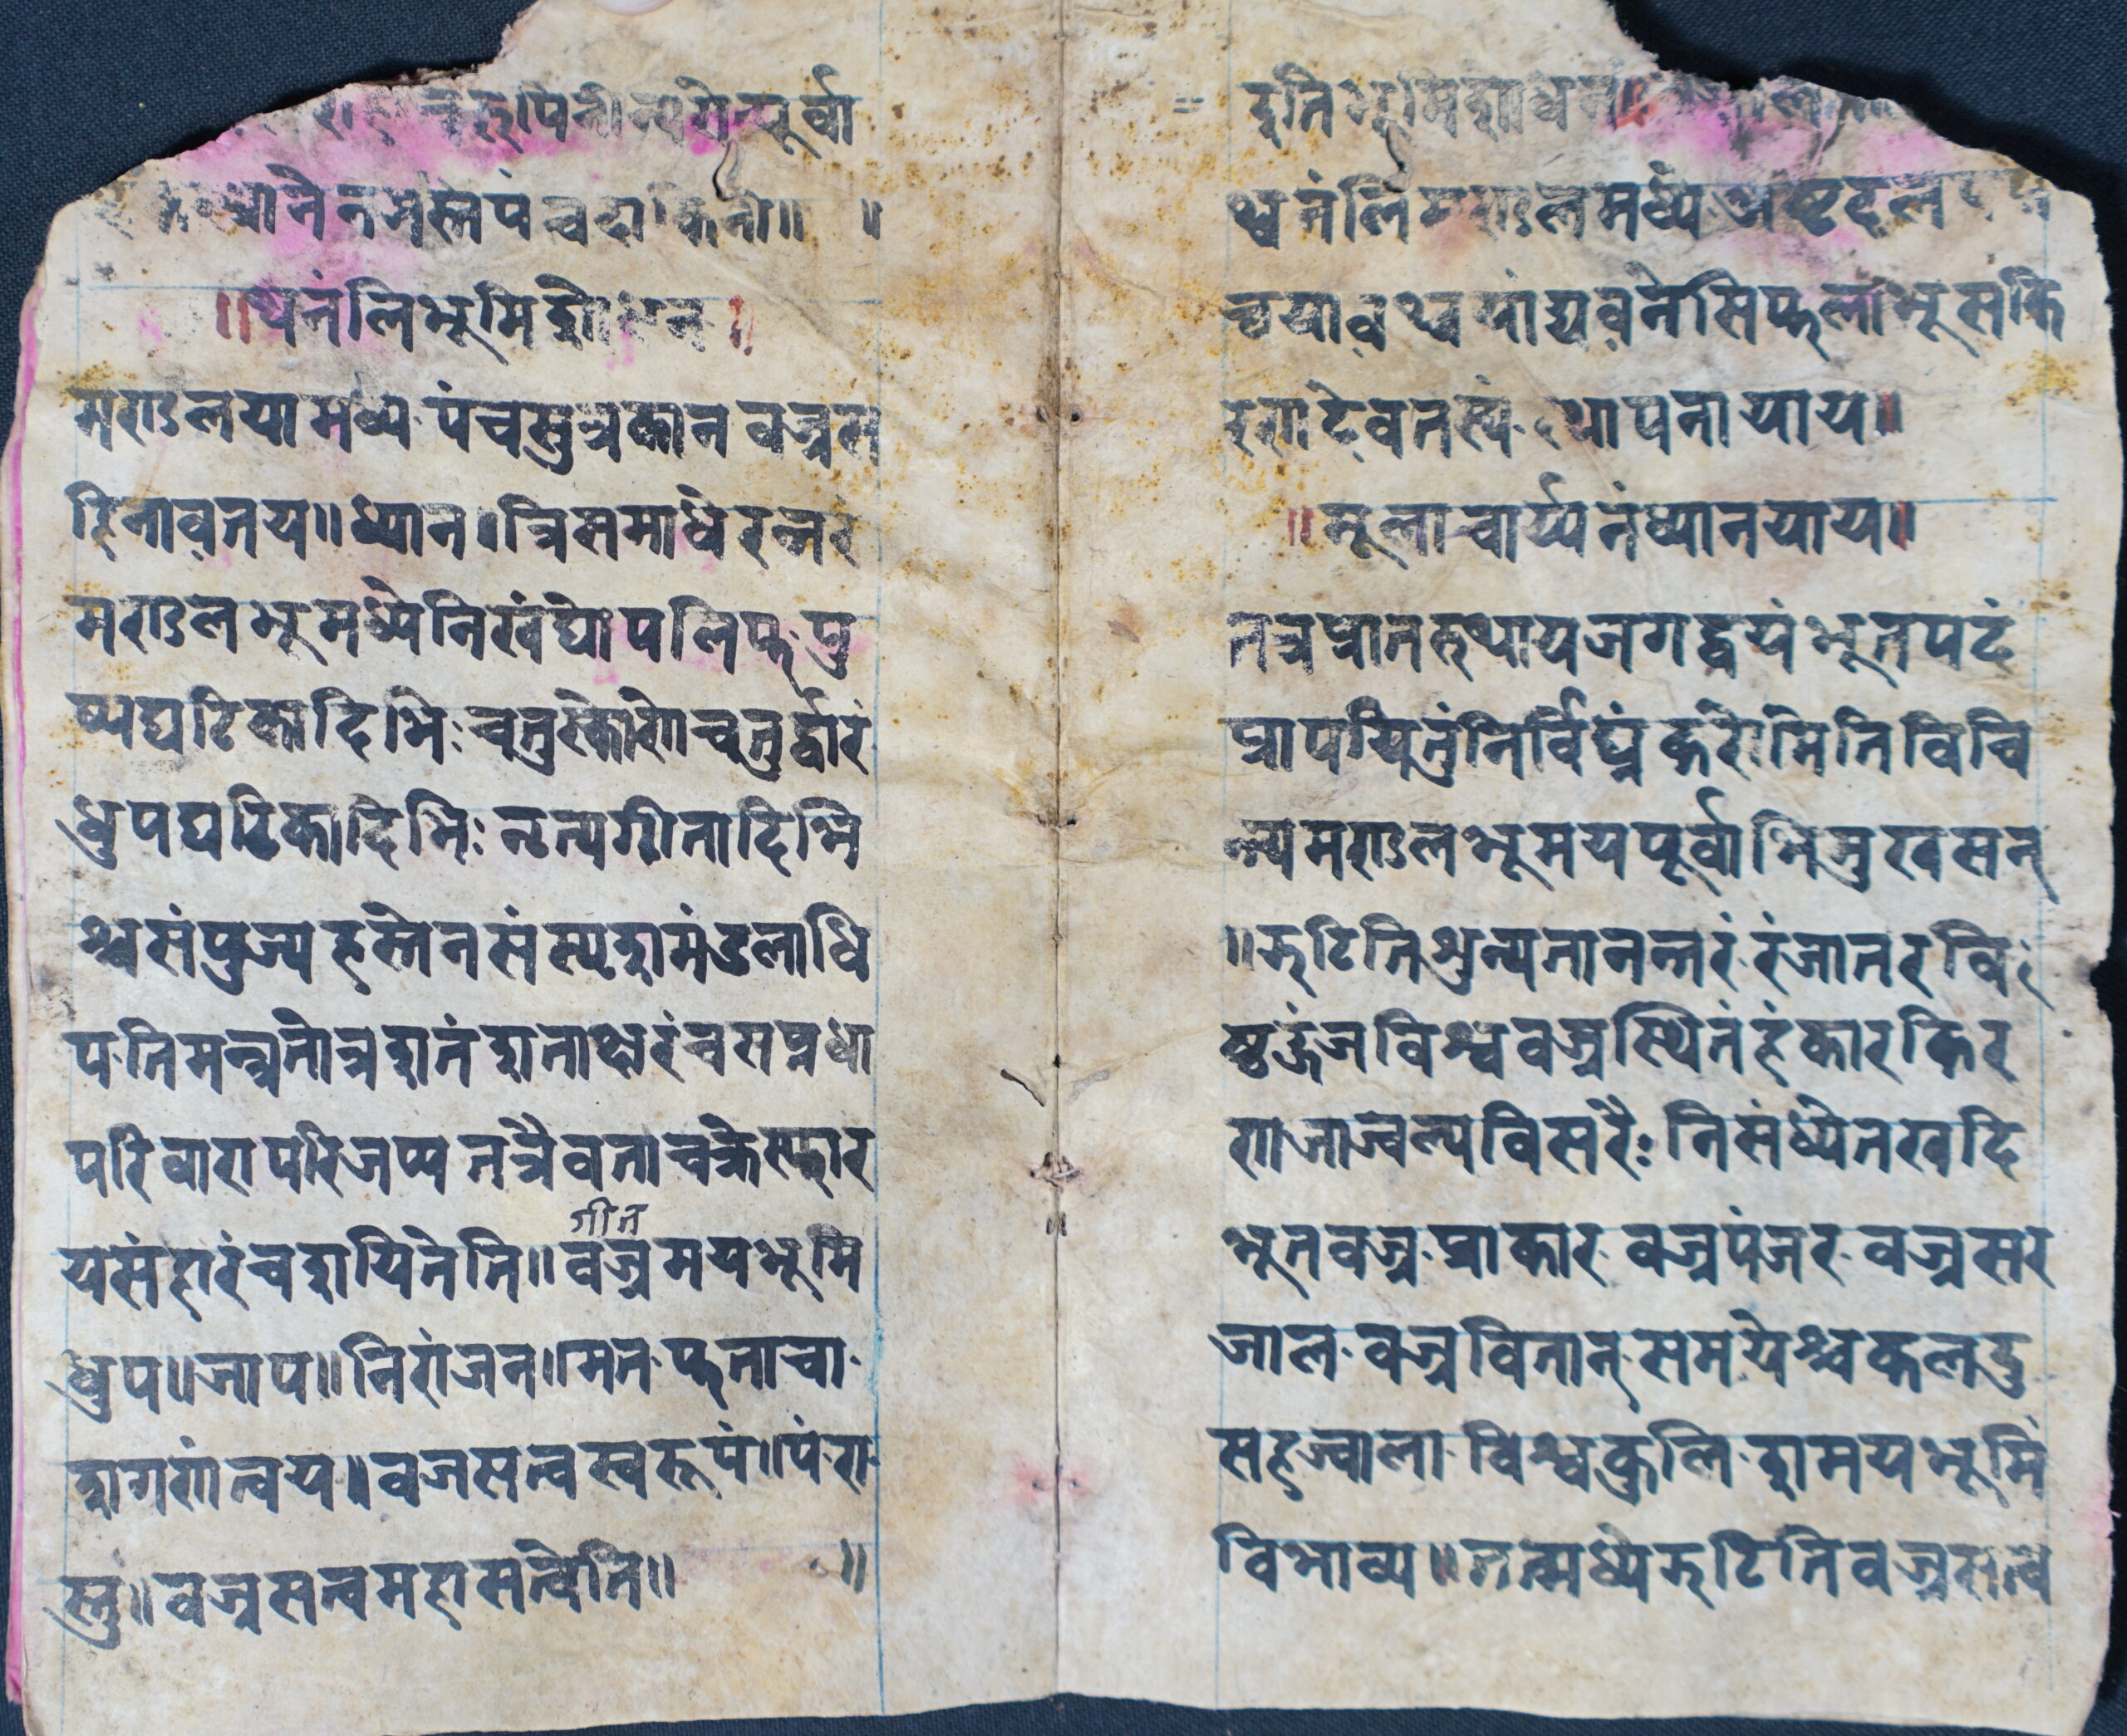 रुपिनीन्यसेत्पूर्वा
ध्यानै नमस्ते पंचडाकिनी॥ ॥
॥थनंलि भूमिशोधन॥
मण्डलया मध्ये पंचसुत्रकान वज्रस
ठिनावतय॥ ध्यान॥ त्रिसमाधेरन्तरं
मण्डल भूमध्ये निखंद्योपलिप्त पु
ष्पद्यटिकादिभिः चतुस्कोणे चतुर्द्वारं
धुपद्यटिकादिभिः नृत्यगीतादिभि
श्च संपुज्य हस्तेन संस्पृश्य मंडलाधि
पतिमन्त्रनोत्र शतं शताक्षरं च सप्तधा
परिवारा परिजप्य तत्रैव ताचक्रे स्फार
य संहारं च शयितेति॥ वज्रमयभूमि
गीत
धुप॥ जाप॥ निरांजन॥ मत फ्तनाचा
शगणं त्वय॥ वजसत्वस्वरूपं॥ पंरा
स्तु॥ वज्रसत्वमहासत्वेति॥ ॥
इति भूमिशोधन॥
थ्वनंलि मण्डल मध्ये अष्टदल
चयाव थ्व यां द्यवने सिफ्तलं भूसकि
रणादेवतस्यं थापना याय॥
॥मूलाचार्य्यनं ध्यान याय॥
तत्र प्रातरुथाय जगद्वयं भूतपदं
प्रापयितुं निर्विघ्नं करोमिति विचि
न्त्य मण्डल भूमय पूर्वाभिमुख सन्
॥ झटिति शुन्यतानन्तरं रं जात रवि
ष्ठ हूं ज विश्ववज्रस्थितं हूंकार किर
णा जाज्वल्यविसरैः निसंध्येन खदि
भुत वज्र प्राकार वज्रपंजर वज्रसर
जाल वज्रवितान् समयेश्च कलदु
सह ज्वाला विश्वकुलिशमय भूमिं
विभाव्य॥ तत्मध्ये झटिति वज्रसत्वं